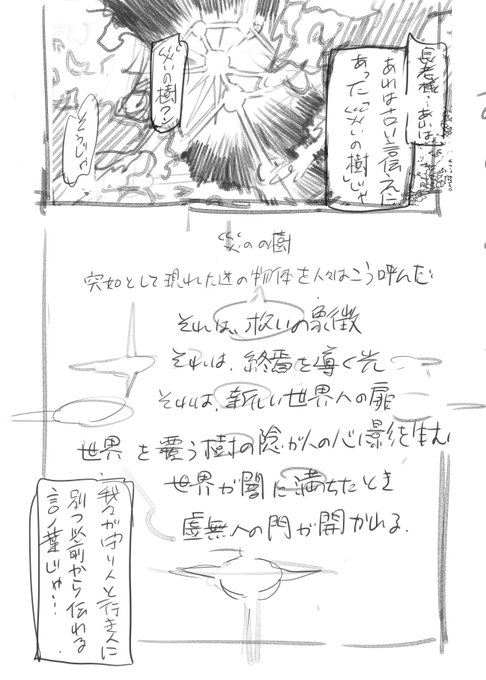 長老様…あれは…
あれは古い言い伝えに
あった「災いの樹」じゃ
災いの樹?
そうじゃ
災いの樹
突如として現れた
の物体を人々はこう呼んだ
それは、救いの象徴
それは、終焉を導く光
それは、新しい世界への扉
世界を覆う樹の陰が人の心に影を生む
世界が闇に満ちたとき
虚無への門が開かれる.
我々が守り人と行き人に
別つ以前から伝わる
言ノ葉じゃ…